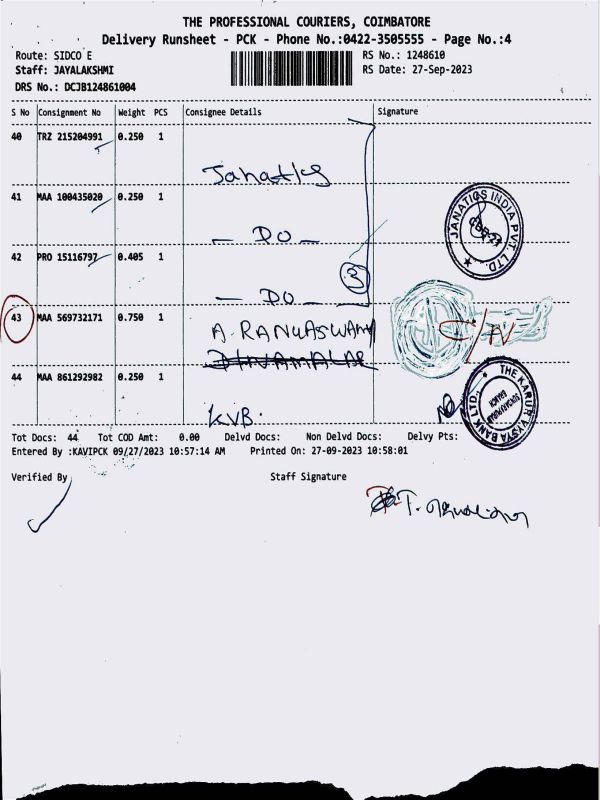 THE PROFESSIONAL COURIERS, COIMBATORE
Delivery Runsheet - PCK - Phone No.:0422-3505555 - Page No.:4
Route: SIDCO E
RS No.: 1248610
Staff: JAYALAKSHMI
RS Date: 27-Sep-2023
DRS No.: DCJB124861004
S No Consignment No Weight PCS Consignee Details Signature
40 TRZ 215204991 0.250 1
Janatics
41 MAA 100435020 0.250 1
JANATICS INDIA PVT. LTD.
— DO —
42 PRO 15116797 0.405 1
3
— DO —
43 MAA 569732171 0.750 1
A. RANGASWAMY
DINAMALAR
44 MAA 861292982 0.250 1
THE KARUR VYSYA BANK LTD.,
KVB.
Tot Docs: 44 Tot COD Amt: 0.00 Delvd Docs: Non Delvd Docs: Delvy Pts:
Entered By :KAVIPCK 09/27/2023 10:57:14 AM Printed On: 27-09-2023 10:58:01
Verified By Staff Signature